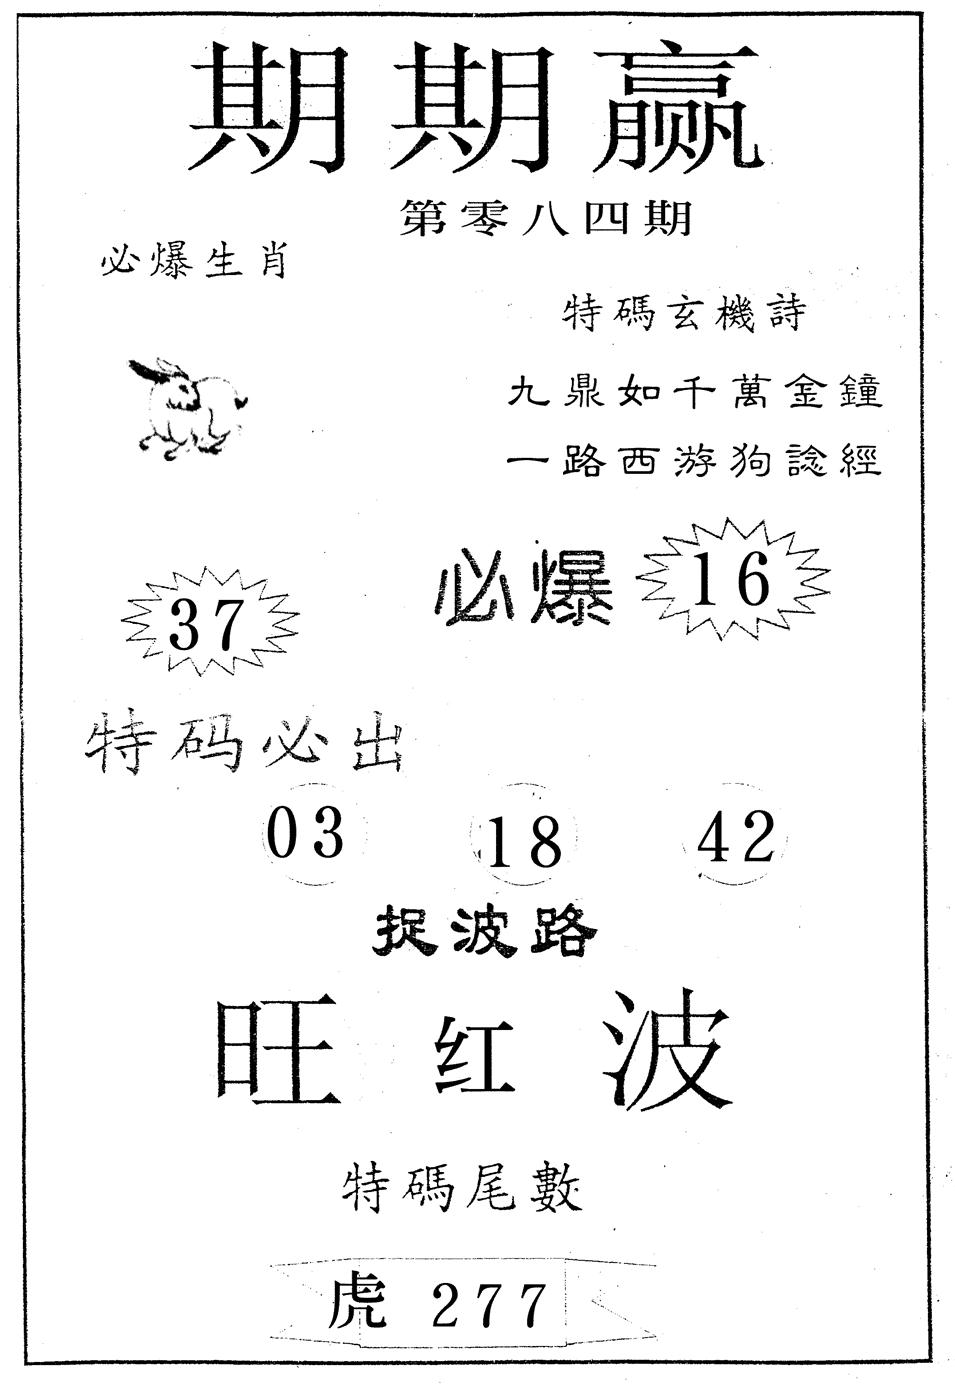 期期赢
第零八四期
必爆生肖
特碼玄機詩
九鼎如千萬金鐘
一路西游狗諗經
必爆 16
37
特码必出
03 18 42
捉波路
旺红波
特碼尾數
虎 277